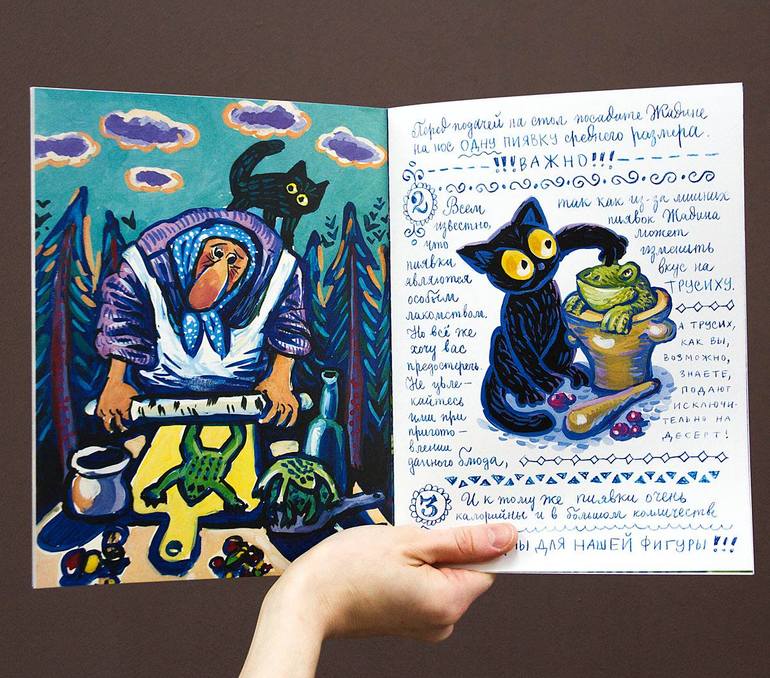 Перед подачей на стол посадите Жадине
на нос ОДНУ ПИЯВКУ среднего размера.
!!!ВАЖНО!!!
2
Всем
известно,
что
пиявки
являются
особым
лакомством.
Но всё же
хочу вас
предостеречь.
Не увле-
кайтесь
ими при
пригото-
влении
данного блюда,
так как из-за лишних
пиявок Жадина
может
изменить
вкус на
ТРУСИХУ.
А ТРУСИХ,
КАК ВЫ,
ВОЗМОЖНО,
ЗНАЕТЕ,
ПОДАЮТ
ИСКЛЮЧИ-
ТЕЛЬНО НА
ДЕСЕРТ!
3 И к тому же пиявки очень
калорийны и в большом количестве
ДЛЯ НАШЕЙ ФИГУРЫ!!!